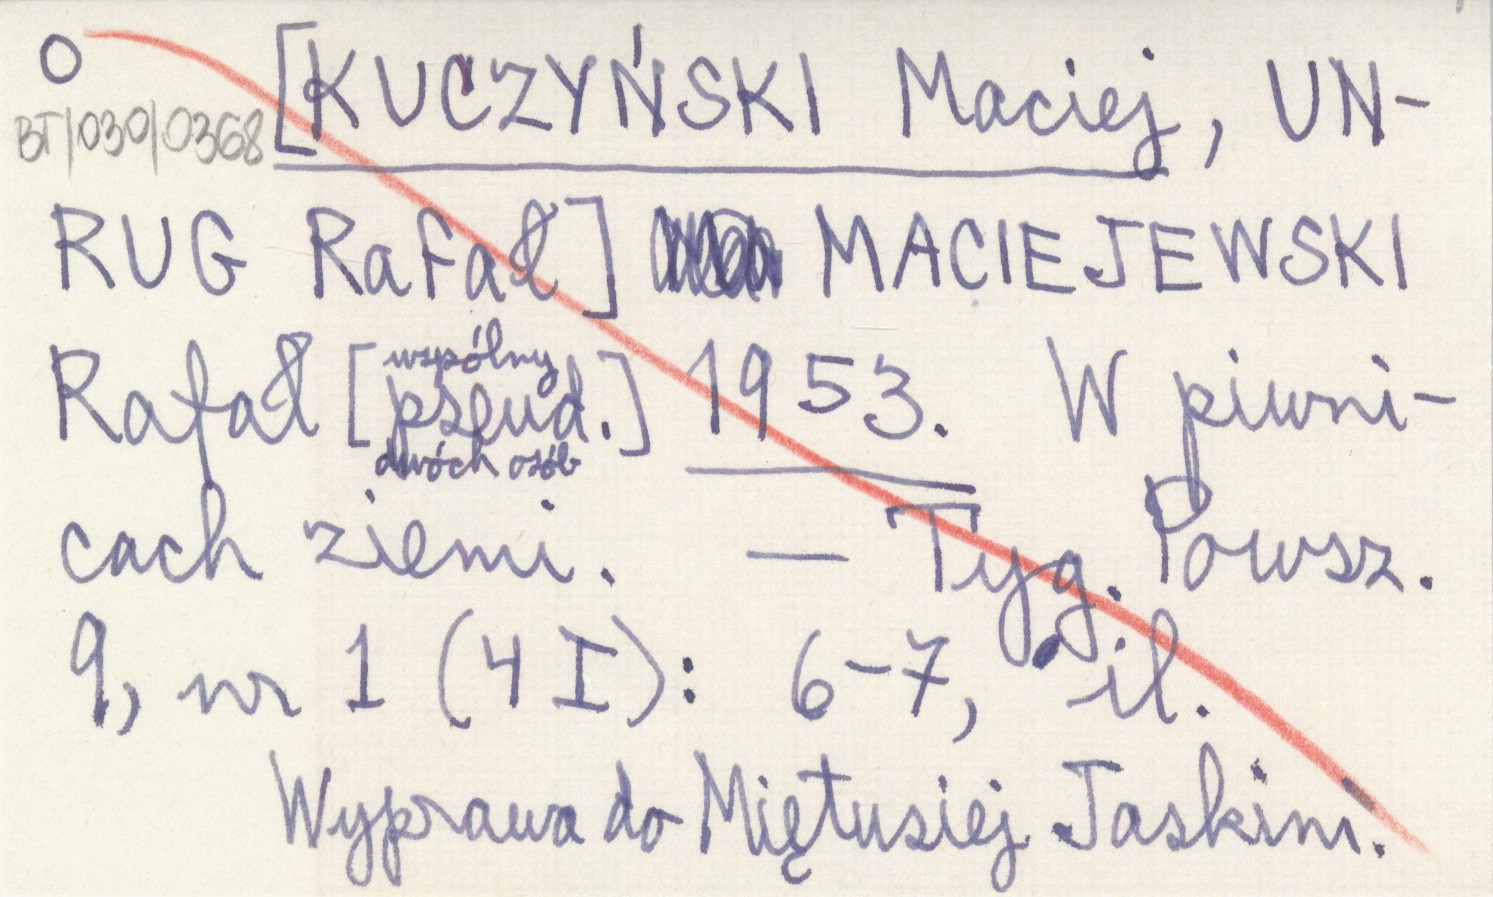 O
BT/030/0368
[KUCZYŃSKI Maciej, UN-
RUG Rafał] MACIEJEWSKI
Rafał [wspólny pseud. dwóch osób] 1953. W piwni-
cach ziemi. — Tyg. Powsz.
9, nr 1 (4 I): 6-7, il.
Wyprawa do Miętusiej Jaskini.